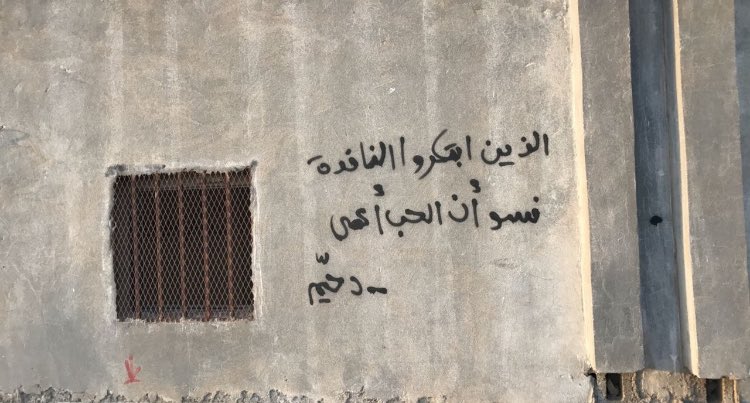 الذين ابتكروا النافذة
نسو أن الحب أعمى
- دحيّم